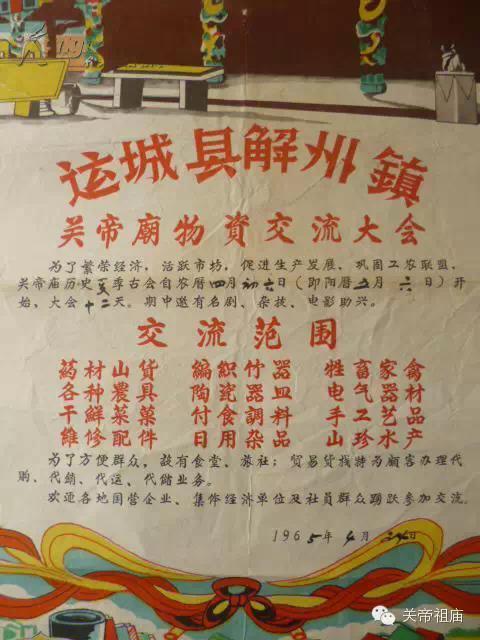 运城县解州鎮
关帝廟物資交流大会
为了繁荣经济，活跃市坊，促进生产发展，巩固工农联盟，
关帝庙历史夏季古会自农曆四月初六日（即阳曆五月六日）开
始，大会十二天。期中邀有名剧、杂技、电影助兴。
交流范围
葯材山貨 編織竹器 牲畜家禽
各种農具 陶瓷器皿 电气器材
干鮮菜菓 付食調料 手工艺品
維修配件 日用杂品 山珍水产
为了方便群众，設有食堂、旅社；貿易貨栈特为顧客办理代
购、代銷、代运、代儲业务。
欢迎各地国营企业、集体经济单位及社員群众踴跃参加交流。
1965年4月 日
关帝祖庙